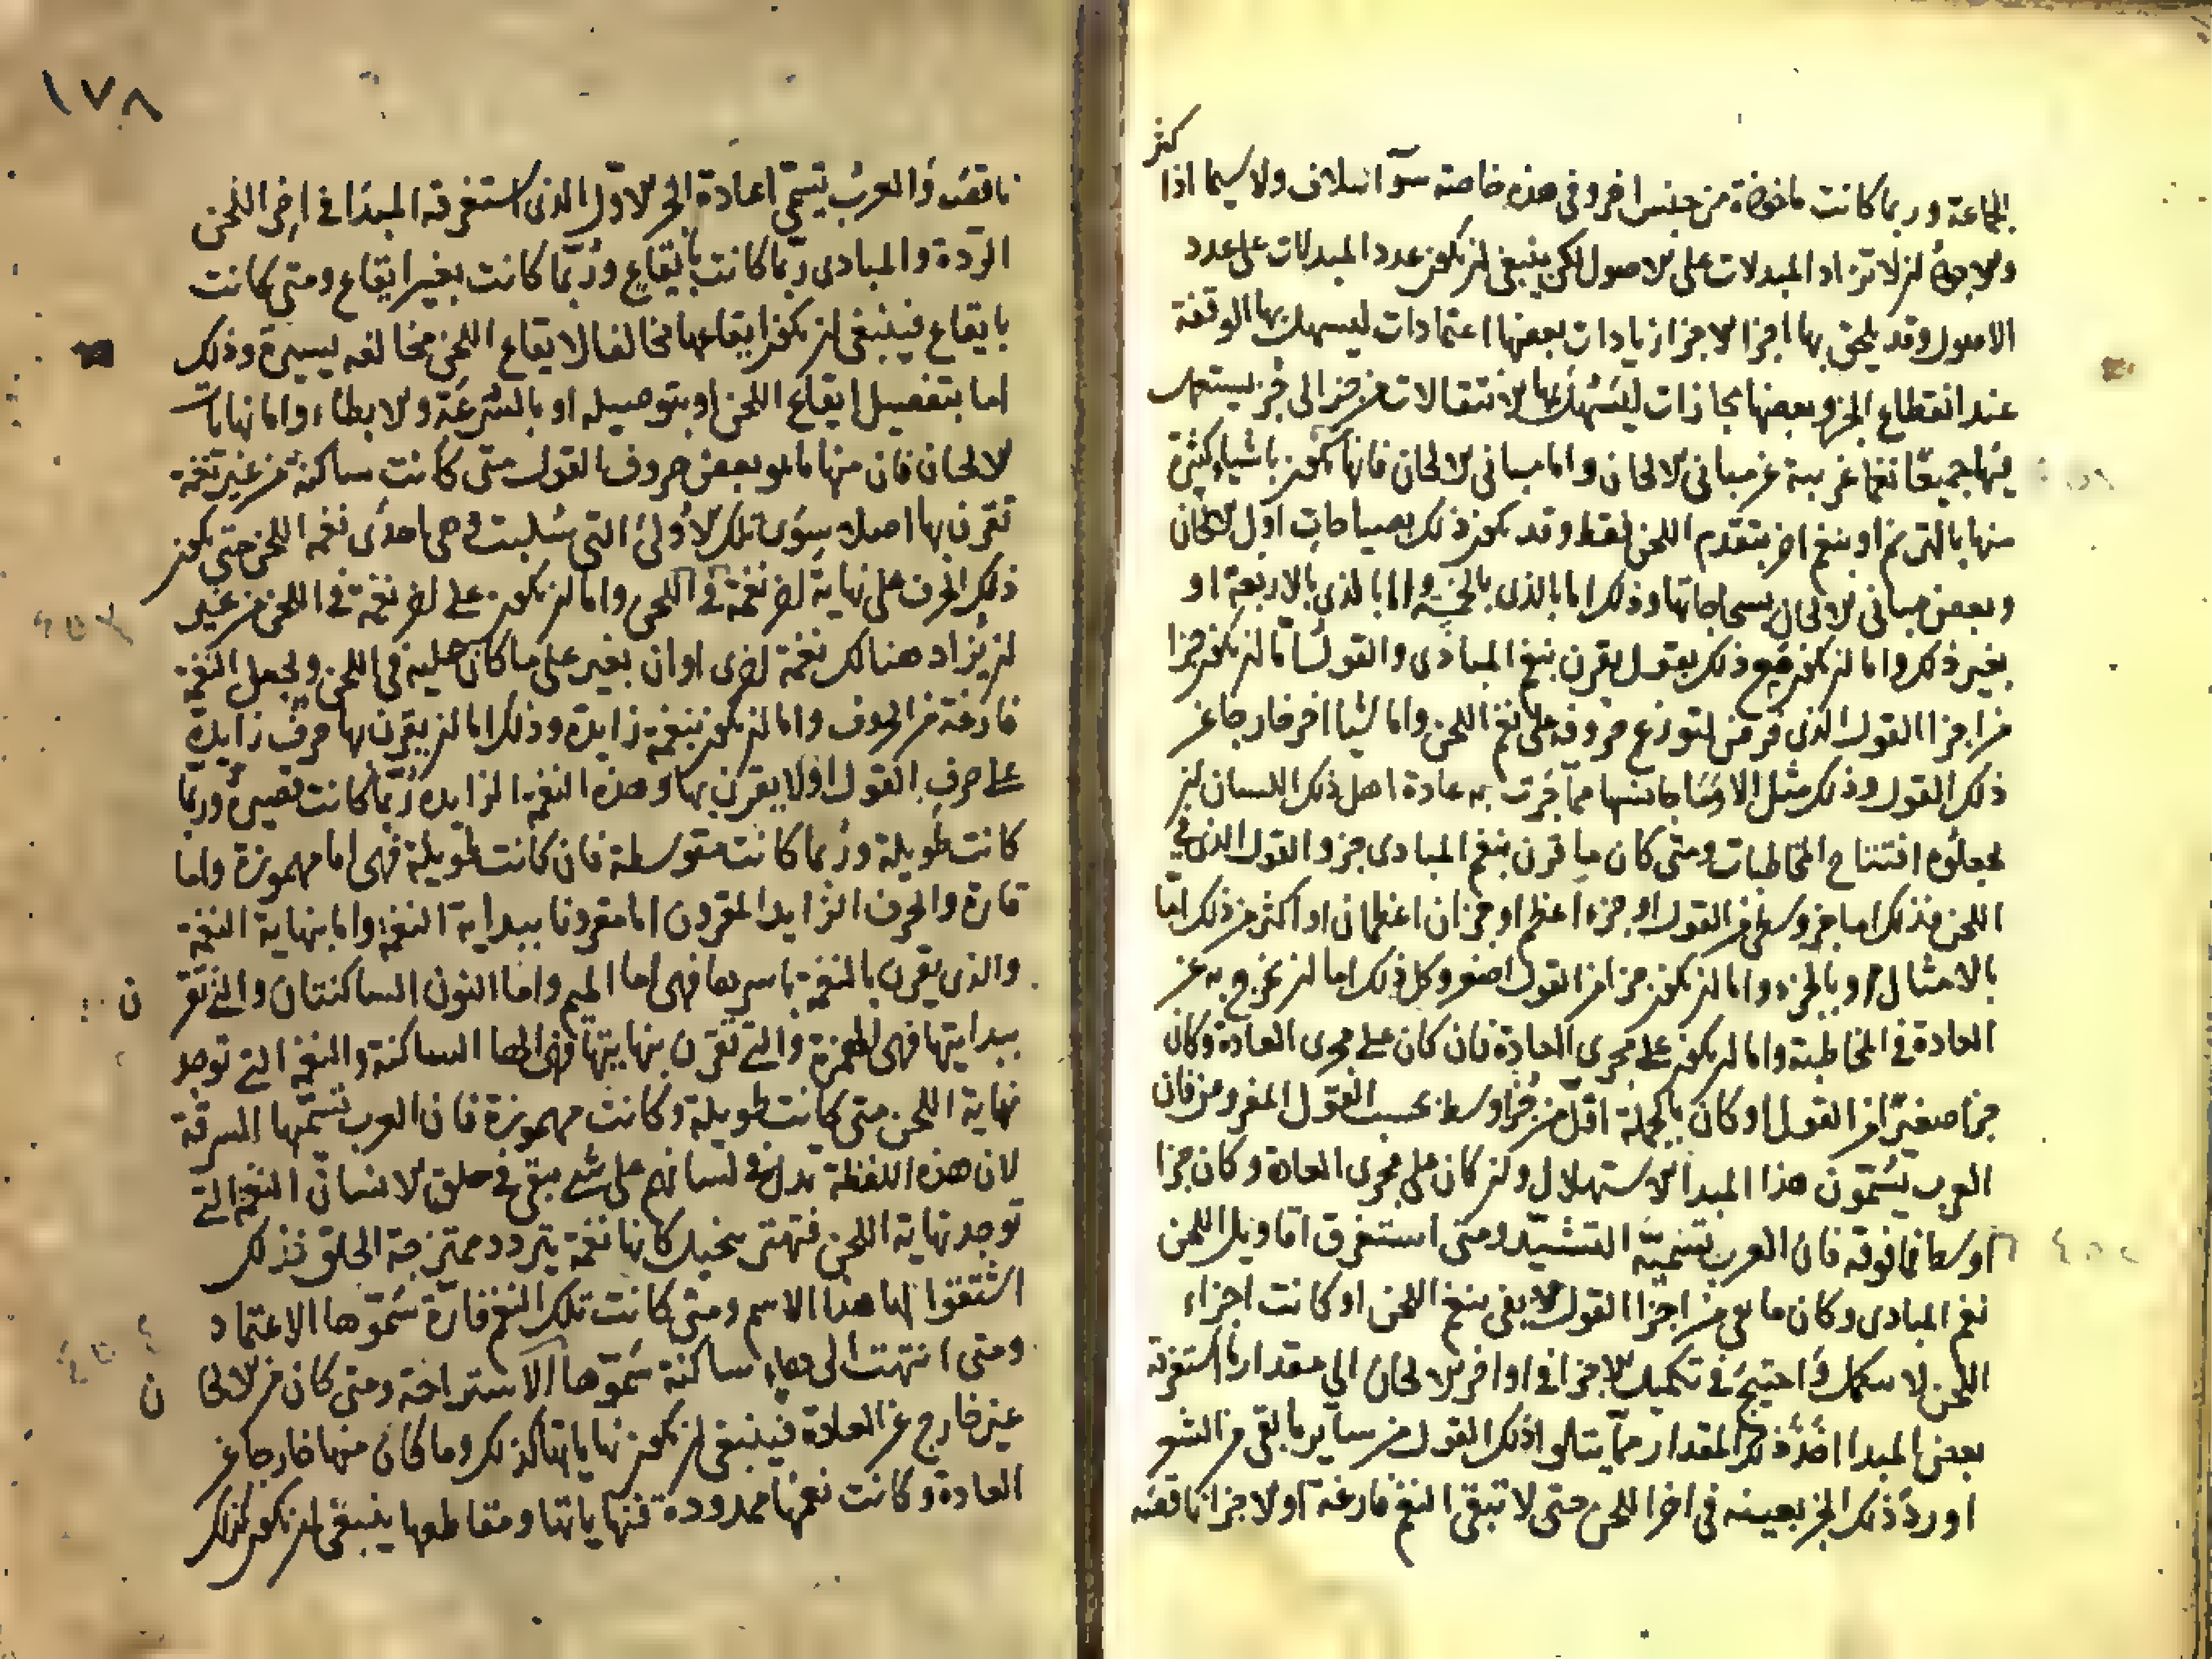 كثر
الجماعة وربما كانت ماخوذة من جنس اخر وفي هذه خاصة سوآ اسلاف ولا سيما اذا
والاجود ان لا تزاد المبدلات على الاصول لكن ينبغي ان يكون عدد المبدلات على عدد
الاصول وقد يلحق بها اجزا الاجزا زيادات بعضها اعتمادات ليسهل بها الوقفة
عند انقطاع الجزو وبعضها مجازات ليسهل بها الانتقالات من جز الى جز يستعمل
فيها جميعا نغما غريبة عن مباني الالحان واما مباني الالحان فانها تكون باشيا كثيرة
منها بالترنم او بنغم اخر يتقدم اللحن فقط وقد يكون ذلك بصياحات اول الالحان
وبعض مباني الالحان بسحاحاتها وذلك اما بالذي بالخمسة واما بالذي بالاربعة او
بغير ذلك واما ان يكون مع ذلك بقول يقرن بنغم المبادى والقول اما ان يكون جزا
من اجزا القول الذي فرض لتوزع حروفه على نغم اللحن واما شيا اخر خارجا عن
ذلك القول وذلك مثل الا وما جانسها مما جرت به عادة اهل ذلك اللسان ان
يجعلوه افتتاح المخاطبات ومتى كان ما قرن بنغم المبادى جزو القول الذي في
اللحن فذلك اما جزو وسط من القول او جزء اعظم او جزان اعظمان او اكثر من ذلك اما
بالامثال او بالجزء واما ان يكون جزا من القول اصغر وكل ذلك اما ان يخرج به عن
العادة في المخاطبة واما ان يكون على مجرى العادة فان كان على مجرى العادة وكان
جزا صغيرا من القول او كان بالجملة اقل من جزا وسط بحسب القول المفروض فان
العرب يسمون هذا المبدا الاستهلال وان كان على مجرى العادة وكان جزا
اوسط فما فوقه فان العرب تسميه التشييد ومتى استغرق اقاويل اللحن
نغم المبادى وكان ما بقي من اجزا القول لا يفي بنغم اللحن او كانت اجزاء
اللحن لا تكمل واحتيج في تكميل الاجزا في اواخر الالحان الى مقدار ما استغرقه
بعض المبدا اخذ ذلك المقدار مما يتلوا ذلك القول من سآير ما بقي من الشعر
او ردد ذلك الجز بعينه في اخر اللحن حتى لا تبقى النغم فارغة او الاجزا ناقصه
١٧٨
ناقصه والعرب تسمى اعادة الجز الاول الذي استغرقه المبدا في اخر اللحن
الردة والمبادى ربما كانت بايقاع وربما كانت بغير ايقاع ومتى كانت
بايقاع فينبغي ان يكون ايقاعها مخالفا لايقاع اللحن مخالفه يسيرة وذلك
اما بتفصيل ايقاع اللحن او بتوصيله او بالسرعة والابطاء واما نهايات
الالحان فان منها ما هو بعض حروف القول متى كانت ساكنة من غير نغمة
تقرن بها اصلا سوى تلك الاولى التي سلبت وهي احدى نغم اللحن حتى يكون
ذلك الحرف على نهاية اخر نغمة في اللحن واما ان يكون على اخر نغمة في اللحن من غير
ان يزاد هنالك نغمة اخرى او ان يغير على ما كان عليه في اللحن ويجعل النغمة
فارغة من الحروف واما ان يكون بنغمة زايدة وذلك اما ان يقرن بها حرف زايدة
على حرف القول او لا يقرن بها وهذه النغمة الزايدة ربما كانت قصيرة وربما
كانت طويلة وربما كانت متوسطة فان كانت طويلة فهي اما مهموزة واما
قارة والحرف الزايد المقرون اما مقرونا ببداية النغمة واما بنهاية النغمة
والذي يقرن بالنغمة باسرها فهي اما الميم واما النون الساكنتان والتي تقر
ن
ببدايتها فهي الهمزة والتي تقرن بنهايتها فهي الها الساكنة والنغم التي توجد
نهاية اللحن متى كانت طويلة وكانت مهموزة فان العرب تسمتها الشرقة
لان هذه اللفظة تدل في لسانهم على شي يبقى في حلق الانسان النغمة التي
توجد نهاية اللحن فتهتز يخيل كانها نغمة يتردد ممتزجة الحلق فذلك
اشتقوا لها هذا الاسم ومتى كانت تلك النغم قارة سموها الاعتماد
ومتى انتهت الى هاء ساكنة سموها الاستراحة ومتى كان من الالحا
ن
غير خارج عن العادة فينبغي ان يكون نهاياتها كذلك وما كان منها خارجا عن
العادة وكانت نغمها ممدودة فنهاياتها ومقاطعها ينبغي ان يكون كذلك